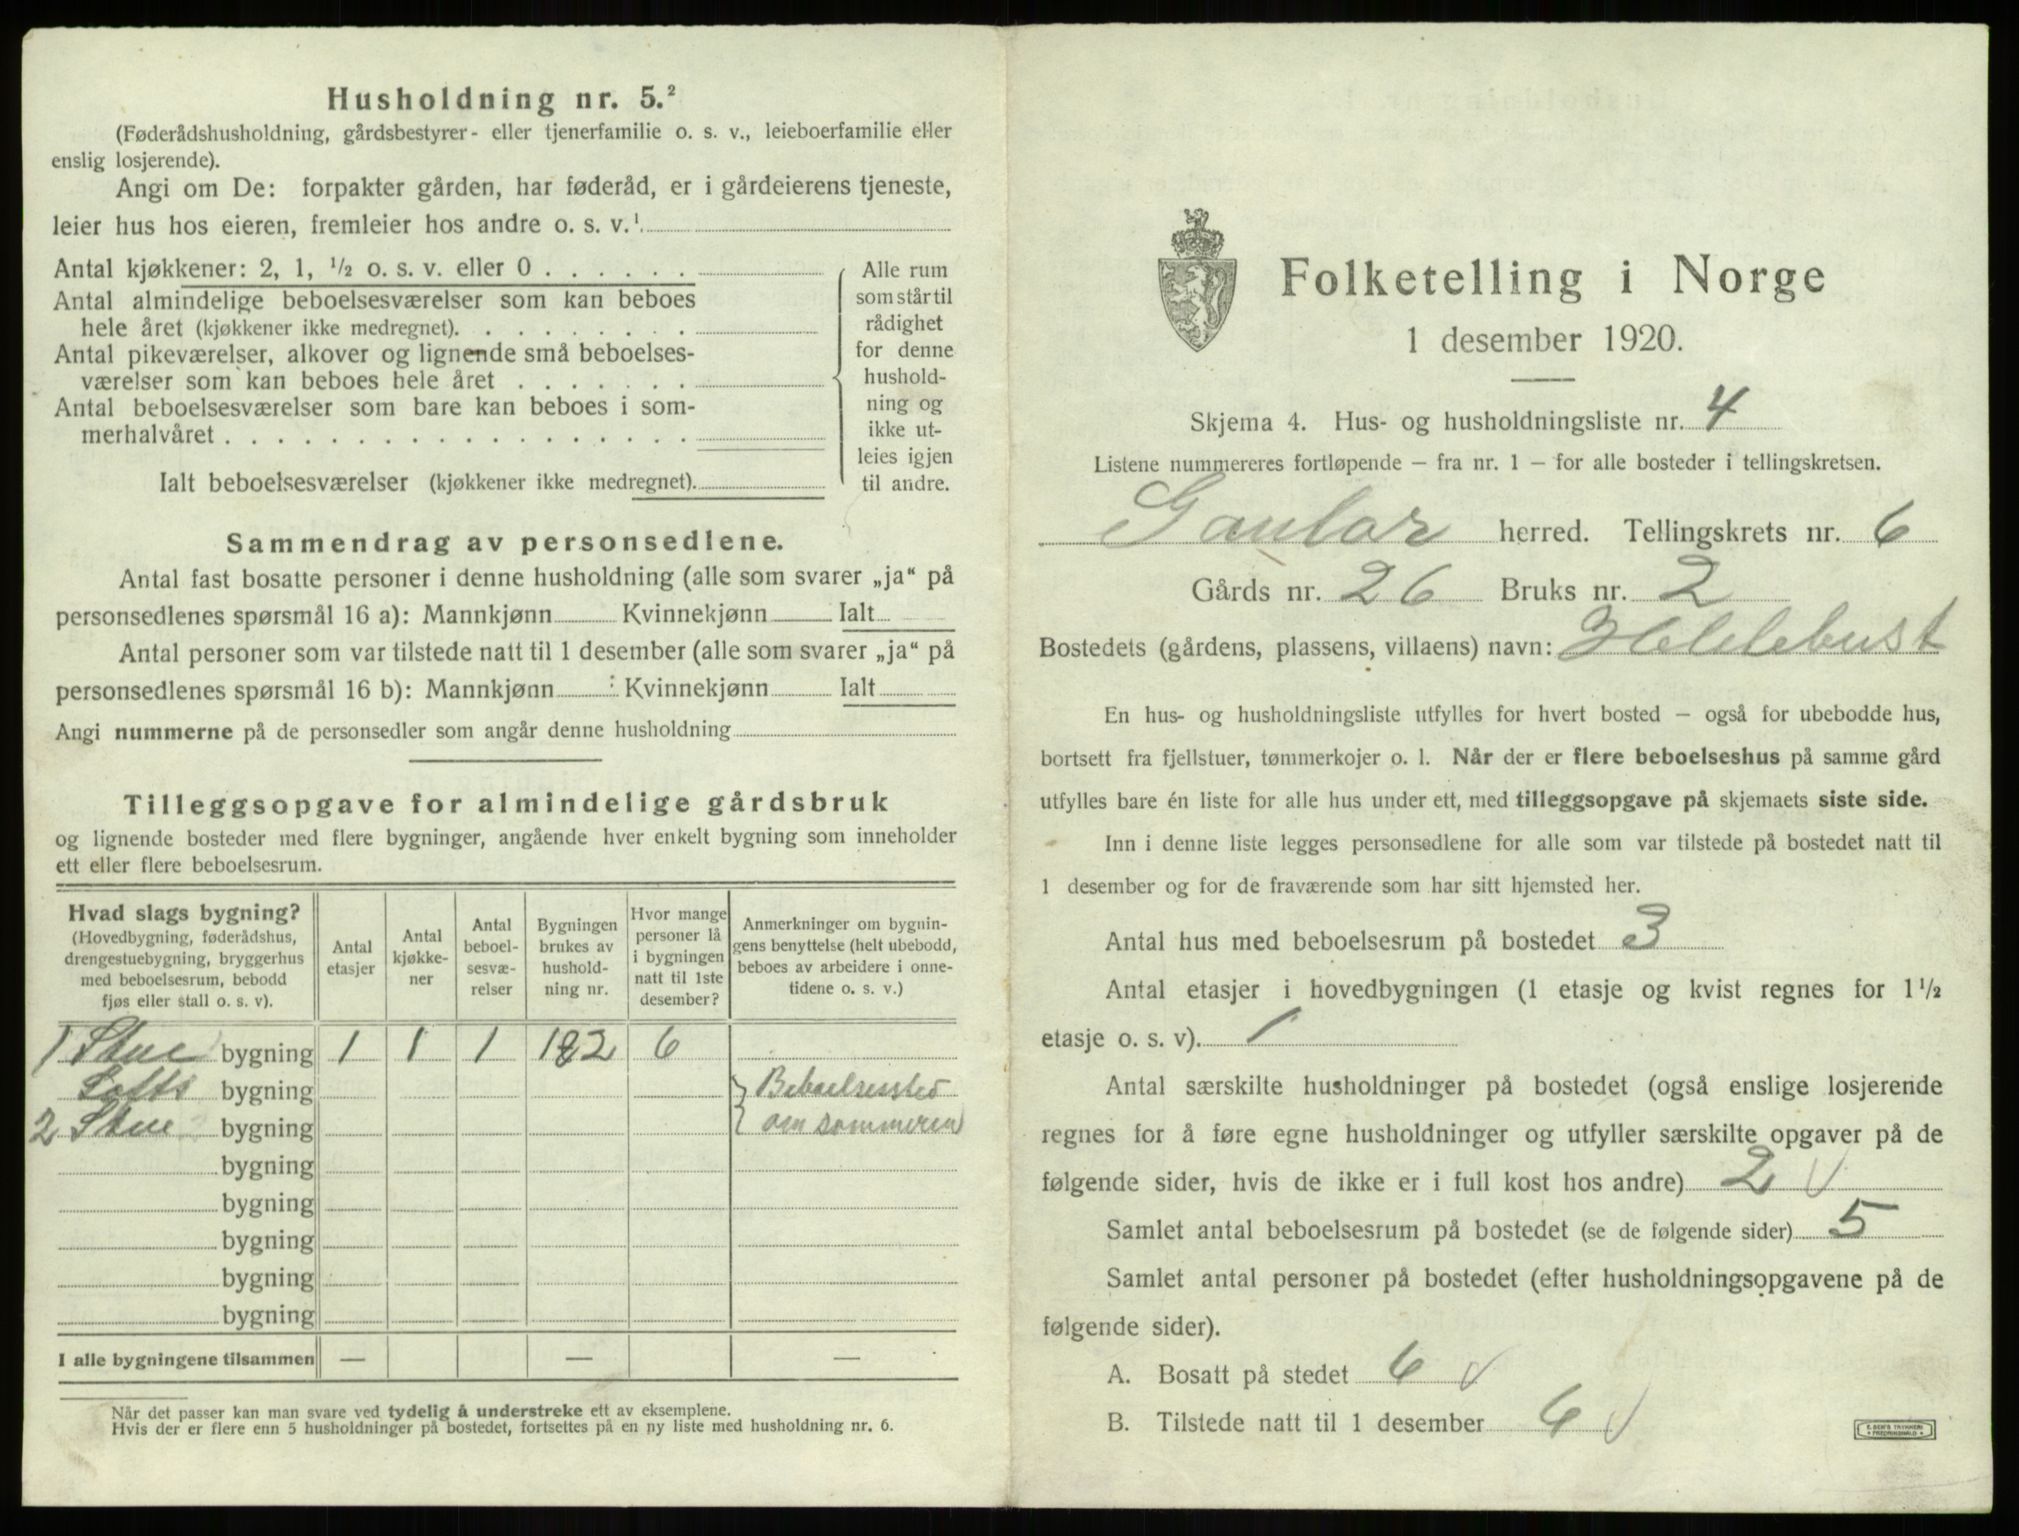 Husholdning nr. 5.²
(Føderådshusholdning, gårdsbestyrer- eller tjenerfamilie o. s. v., leieboerfamilie eller
enslig losjerende).
Angi om De: forpakter gården, har føderåd, er i gårdeierens tjeneste,
leier hus hos eieren, fremleier hos andre o. s. v.¹
Antal kjøkkener: 2, 1, ½ o. s. v. eller 0 . . . . . .
Antal almindelige beboelsesværelser som kan beboes
hele året (kjøkkener ikke medregnet). . . . . . . . .
Antal pikeværelser, alkover og lignende små beboelses-
værelser som kan beboes hele året . . . . . . .
Antal beboelsesværelser som bare kan beboes i som-
merhalvåret . . . . . . . . . . . . . . . . . .
Ialt beboelsesværelser (kjøkkener ikke medregnet).
Alle rum
som står til
rådighet
for denne
hushold-
ning og
ikke ut-
leies igjen
til andre.
Sammendrag av personsedlene.
Antal fast bosatte personer i denne husholdning (alle som svarer „ja“ på
personsedlenes spørsmål 16 a): Mannkjønn Kvinnekjønn Ialt
Antal personer som var tilstede natt til 1 desember (alle som svarer „ja“ på
personsedlenes spørsmål 16 b): Mannkjønn Kvinnekjønn Ialt
Angi nummerne på de personsedler som angår denne husholdning
Tilleggsopgave for almindelige gårdsbruk
og lignende bosteder med flere bygninger, angående hver enkelt bygning som inneholder
ett eller flere beboelsesrum.
Hvad slags bygning?
(Hovedbygning, føderådshus,
drengestuebygning, bryggerhus
med beboelsesrum, bebodd
fjøs eller stall o. s. v).
Antal
etasjer
Antal
kjøkke-
ner
Antal
beboel-
sesvæ-
relser
Bygningen
brukes av
hushold-
ning nr.
Hvor mange
personer lå
i bygningen
natt til 1ste
desember?
Anmerkninger om bygnin-
gens benyttelse (helt ubebodd,
beboes av arbeidere i onne-
tidene o. s. v.)
1 Stue bygning 1 1 1 1&2 6
Lofts bygning Beboelsessted
2 Stue bygning om sommeren
bygning
bygning
bygning
bygning
bygning
I alle bygningene tilsammen — — —
Når det passer kan man svare ved tydelig å understreke ett av eksemplene.
Hvis der er flere enn 5 husholdninger på bostedet, fortsettes på en ny liste med husholdning nr. 6.
Folketelling i Norge
1 desember 1920.
Skjema 4. Hus- og husholdningsliste nr. 4
Listene nummereres fortløpende — fra nr. 1 — for alle bosteder i tellingskretsen.
Gaular herred. Tellingskrets nr. 6
Gårds nr. 26 Bruks nr. 2
Bostedets (gårdens, plassens, villaens) navn: Hellebust
En hus- og husholdningsliste utfylles for hvert bosted — også for ubebodde hus,
bortsett fra fjellstuer, tømmerkojer o. l. Når der er flere beboelseshus på samme gård
utfylles bare én liste for alle hus under ett, med tilleggsopgave på skjemaets siste side.
Inn i denne liste legges personsedlene for alle som var tilstede på bostedet natt til
1 desember og for de fraværende som har sitt hjemsted her.
Antal hus med beboelsesrum på bostedet 3
Antal etasjer i hovedbygningen (1 etasje og kvist regnes for 1½
etasje o. s. v). 1
Antal særskilte husholdninger på bostedet (også enslige losjerende
regnes for å føre egne husholdninger og utfyller særskilte opgaver på de
følgende sider, hvis de ikke er i full kost hos andre) 2 √
Samlet antal beboelsesrum på bostedet (se de følgende sider) 5
Samlet antal personer på bostedet (efter husholdningsopgavene på de
følgende sider).
A. Bosatt på stedet 6 √
B. Tilstede natt til 1 desember 6 √